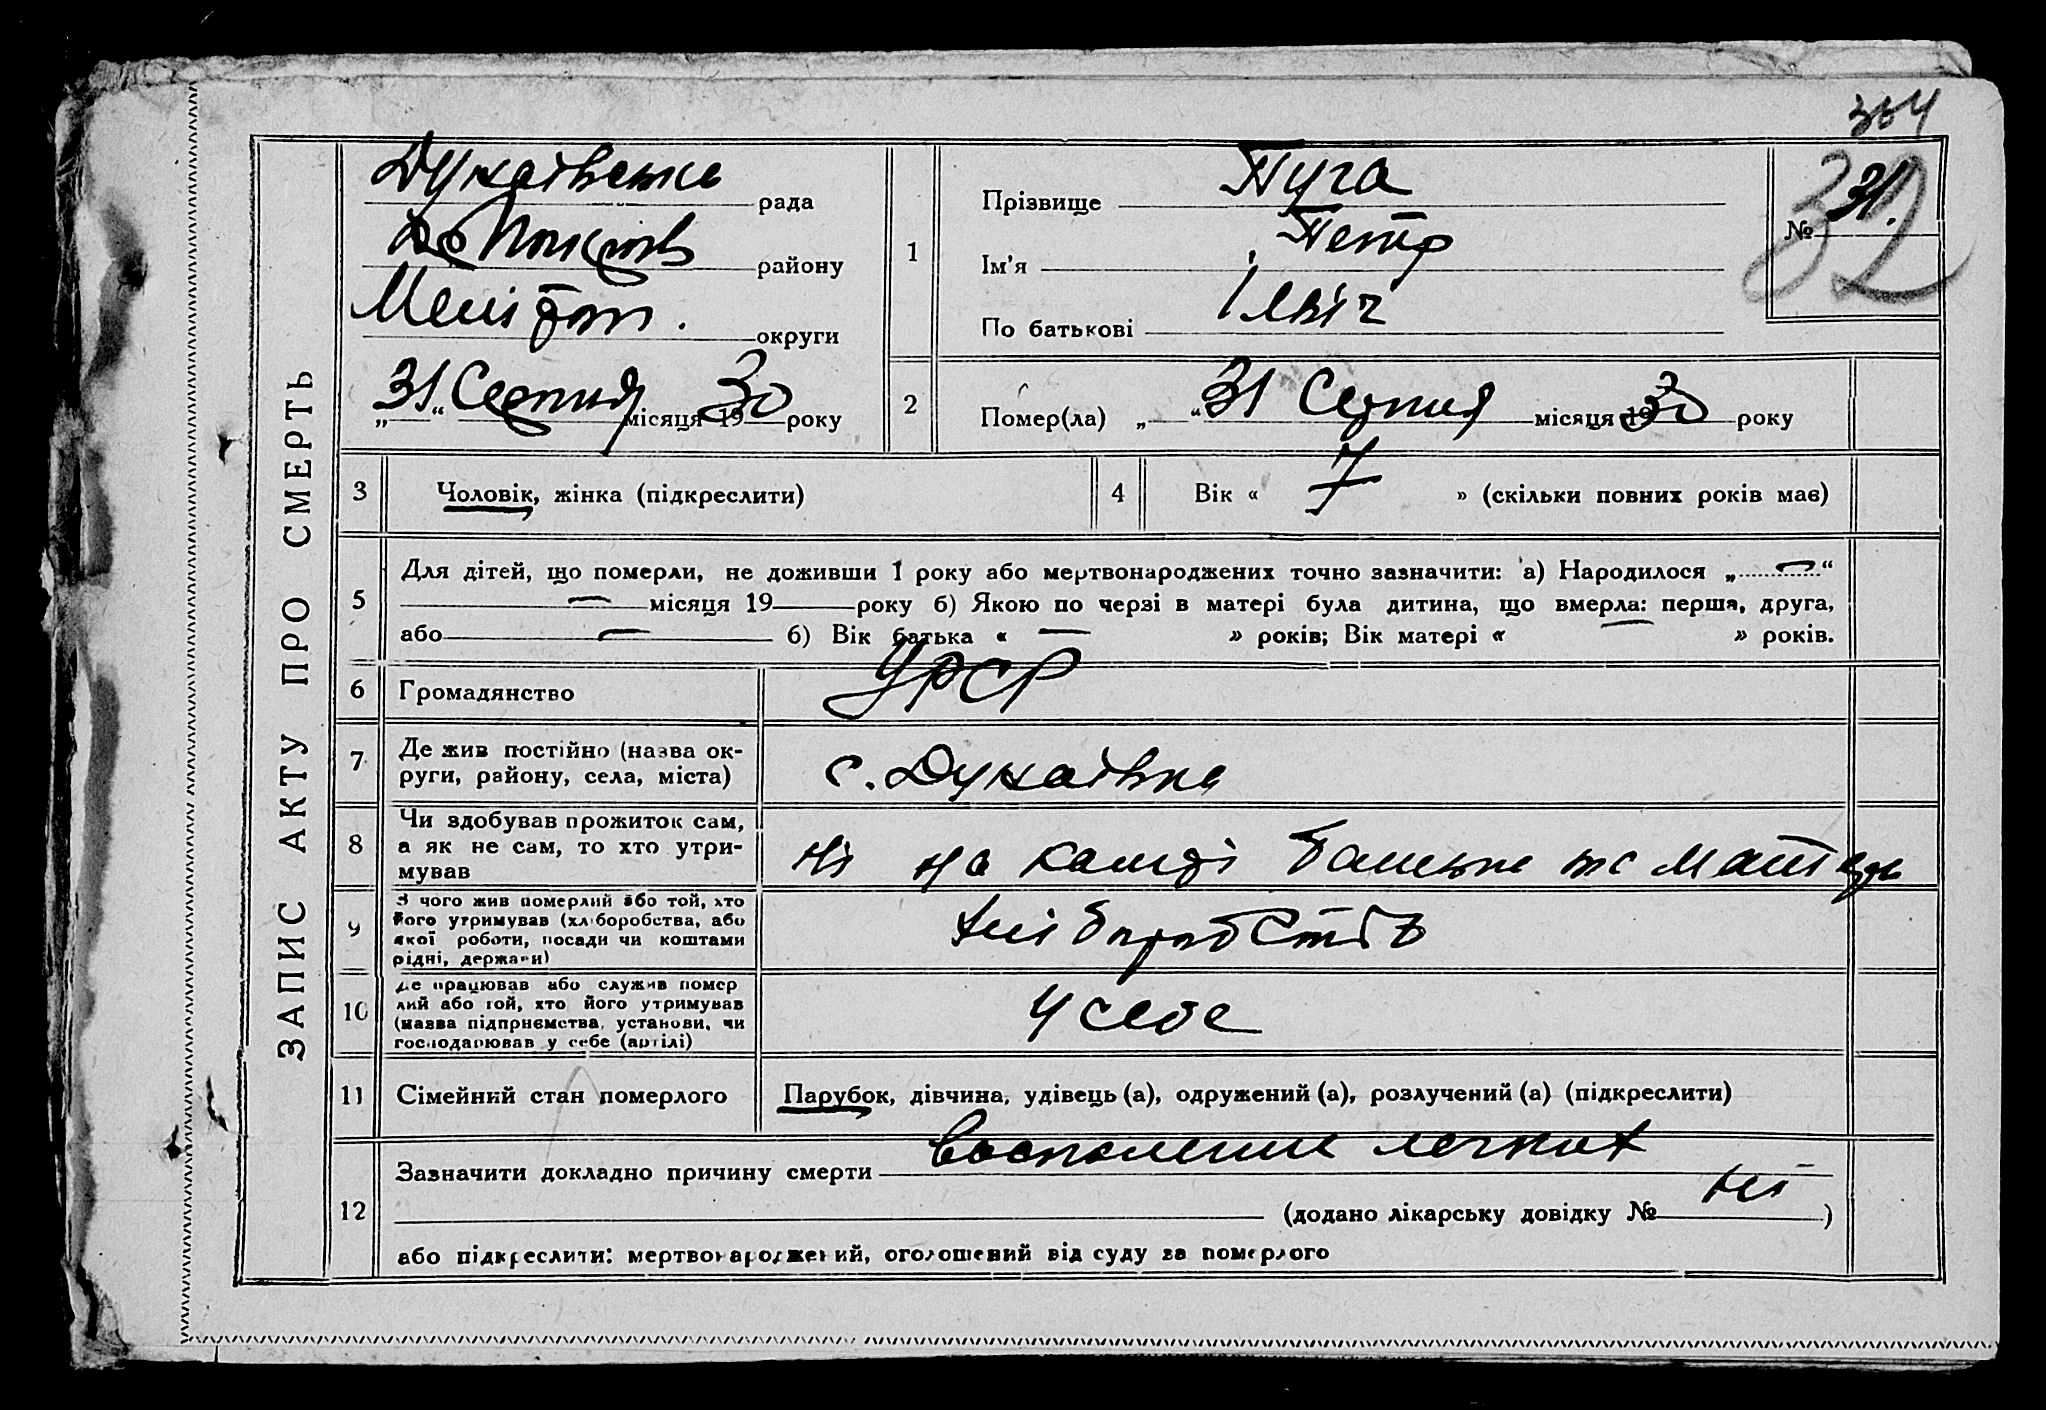 304
ЗАПИС АКТУ ПРО СМЕРТЬ
Дунаївська рада
району
Мелітоп. округи
„31“ Серпня місяця 1930 року
1
Прізвище Пуга
Ім'я Петр
По батькові
№ 31.
32
2
Помер(ла) „31“ Серпня місяця 1930 року
3
Чоловік, жінка (підкреслити)
4
Вік « 7 » (скільки повних років має)
5
Для дітей, що померли, не доживши 1 року або мертвонароджених точно зазначити: а) Народилося „ — “
— місяця 19 року б) Якою по черзі в матері була дитина, що вмерла: перша, друга,
або — б) Вік батька « — » років; Вік матері « — » років.
6
Громадянство УРСР
7
Де жив постійно (назва ок-
руги, району, села, міста)
с. Дунаївка
8
Чи здобував прожиток сам,
а як не сам, то хто утри-
мував
ні на кошті батька та матері
9
З чого жив померлий або той, хто
його утримував (хліборобства, або
якої роботи, посади чи коштами
рідні, держави)
Хліборобство
10
Де працював або служив помер
лий або той, хто його утримував
(назва підприємства, установи, чи
господарював у себе (артілі)
У себе
11
Сімейний стан померлого
Парубок, дівчина, удівець (а), одружений (а), розлучений (а) (підкреслити)
12
Зазначити докладно причину смерти воспаление легких
(додано лікарську довідку № ні )
або підкреслити: мертвонароджений, оголошений від суду за померлого